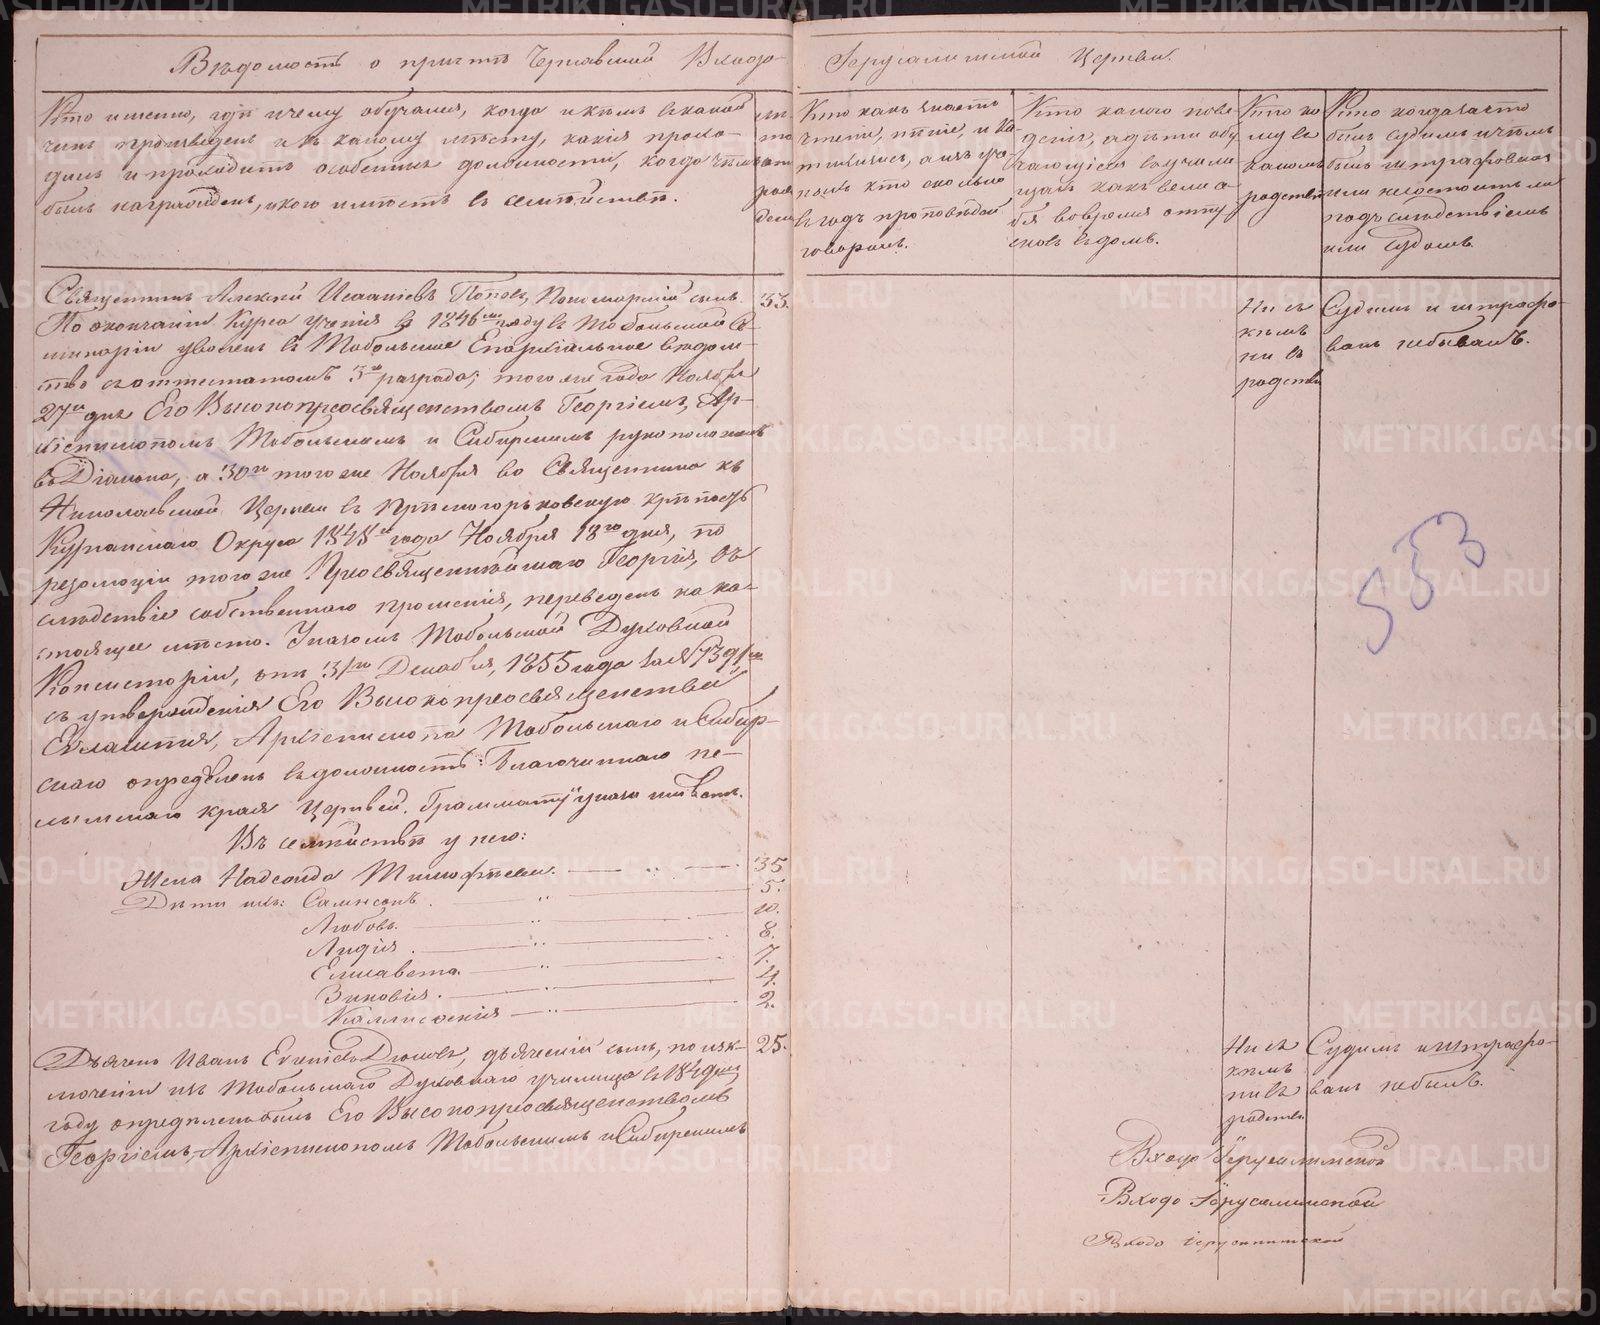 Вѣдомость о причтѣ Чернавской Входо-
Іерусалимской Церкви.
Кто именно, гдѣ и чему обучался, когда и кѣмъ въ какой
чинъ произведенъ и къ какому мѣсту, какія прохо-
дилъ и проходитъ особенныя должности, когда чѣмъ
былъ награжденъ, и кого имѣетъ въ семействѣ.
Кто какъ знаетъ
чтеніе, пѣніе, и ка-
тихизисъ, а изъ уче-
ныхъ кто сколько
въ годъ проповѣдей
говорилъ.
Кто какого пове-
денія, а дѣти обу-
чающіеся въ учили-
щахъ какъ вели се-
бя во время отпу-
сковъ въ домъ.
Кто ко
му въ
какомъ
родствѣ
Кто когда за что
былъ судимъ и чѣмъ
былъ штрафованъ
или не состоитъ ли
подъ слѣдствіемъ
или судомъ.
Священникъ Алексій Исаакіевъ Поповъ, Пономарскій сынъ. 33.
По окончаніи Курса ученія въ 1846мъ году въ Тобольской Се-
минаріи уволенъ въ Тобольское Епархіальное вѣдом-
ство съ аттестатомъ 3го разряда; того же года Ноября
27го дня Его Высокопреосвященствомъ Георгіемъ, Ар-
хіепископомъ Тобольскимъ и Сибирскимъ рукоположенъ
въ Діакона, а 30го того же Ноября во Священника къ
Николаевской Церкви въ Прѣсногорьковскую крѣпость
Курганскаго Округа 1848го года Ноября 18го дня, по
резолюціи того же Преосвященнѣйшаго Георгія, въ
слѣдствіе собственнаго прошенія, переведенъ на на-
стоящее мѣсто. Указомъ Тобольской Духовной
Консисторіи, отъ 31го Декабря, 1855 года за № 7391мъ
съ утвержденія Его Высокопреосвященства
Евлампія, Архіепископа Тобольскаго и Сибир-
скаго опредѣленъ въ должность: Благочиннаго Пе-
лымскаго края Церквей. Граммату и указы имѣетъ.
Ни съ
кѣмъ
ни въ
родствѣ
Судимъ и штрафо-
ванъ небывалъ.
553
Въ семействѣ у него:
Жена Надежда Тимофѣева. 35
Дѣти ихъ: Сампсонъ. 5.
Любовь. 10.
Лидія. 8.
Елисавета. 7.
Зиновія. 4.
Каллисфенія 2.
Дьячекъ Иванъ дьяческій сынъ, по иск- 25.
люченіи изъ Тобольскаго Духовнаго училища въ 1849мъ
году опредѣленъ былъ Его Высокопреосвященствомъ
Георгіемъ, Архіепископомъ Тобольскимъ и Сибирскимъ
Ни съ
кѣмъ
ни въ
родствѣ
Судимъ и штрафо-
ванъ небылъ.
Входо Іерусалимской
Входо Іерусалимской
Входо іерусалимской
METRIKI.GASO-URAL.RU